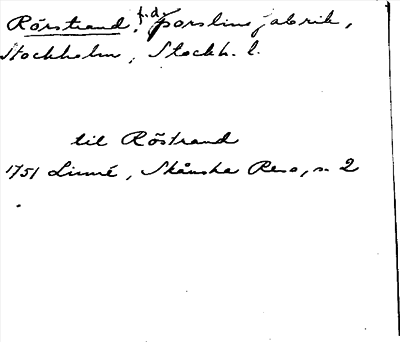 Rörstrand, f.d. porslinsfabrik,
Stockholm, Stockh. l.
til Röstrand
1751 Linné, Skånska Resa, s. 2